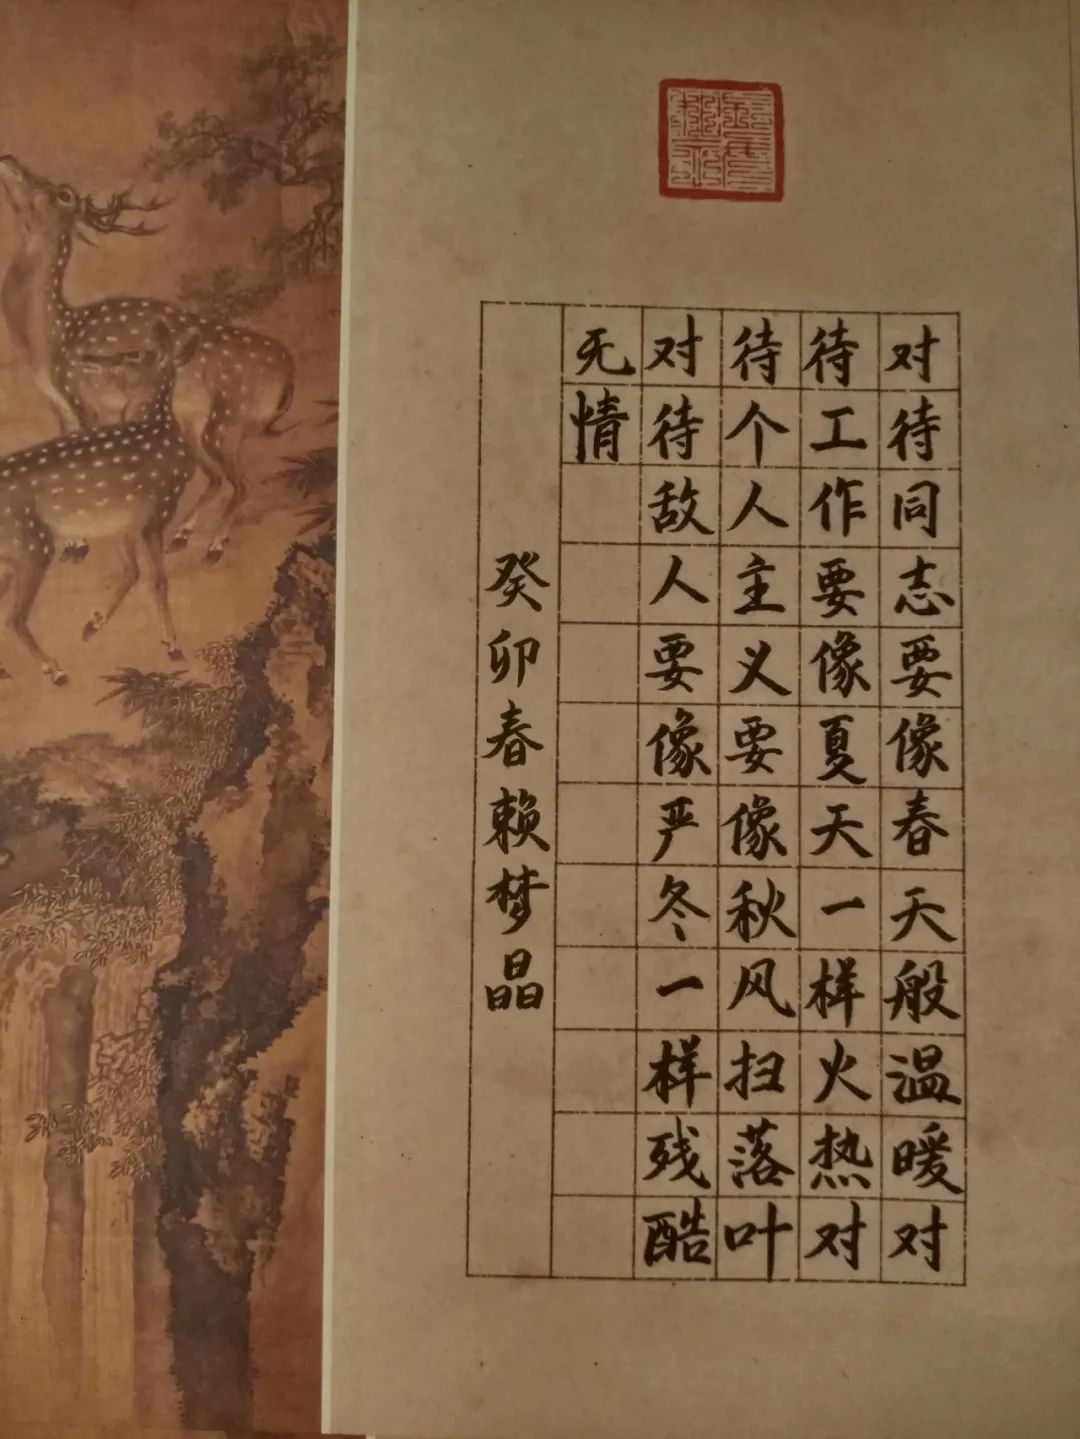 对待同志要像春天般温暖对
待工作要像夏天一样火热对
待个人主义要像秋风扫落叶
对待敌人要像严冬一样残酷
无情
癸卯春赖梦晶